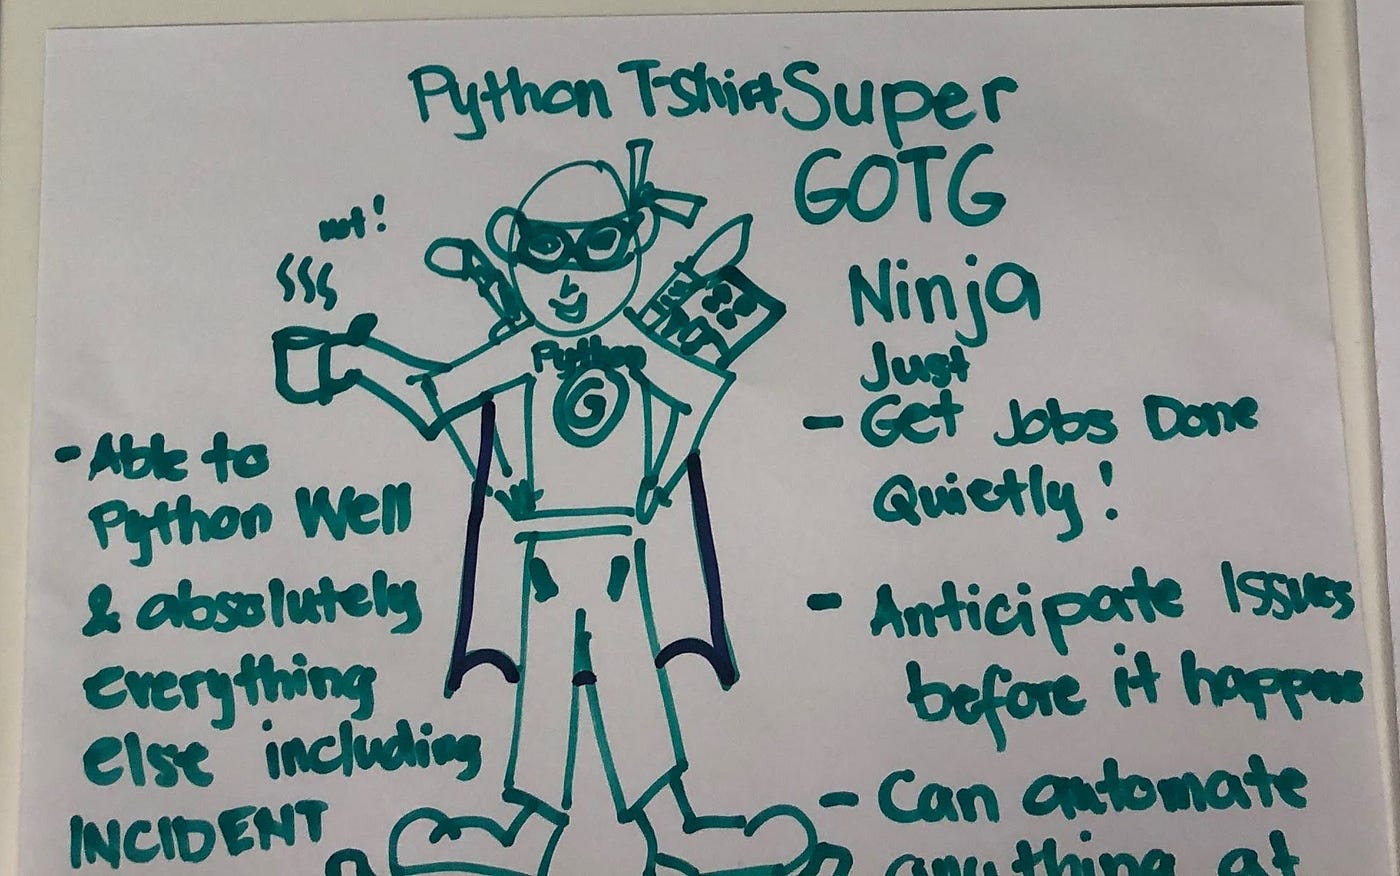 Python T-Shirt Super
GOTG
Ninja
Just
- Get Jobs Done
Quietly!
- Anticipate Issues
before it happens
- Can automate
anything at
Python
G
- Able to
Python Well
& absolutely
everything
else including
INCIDENT